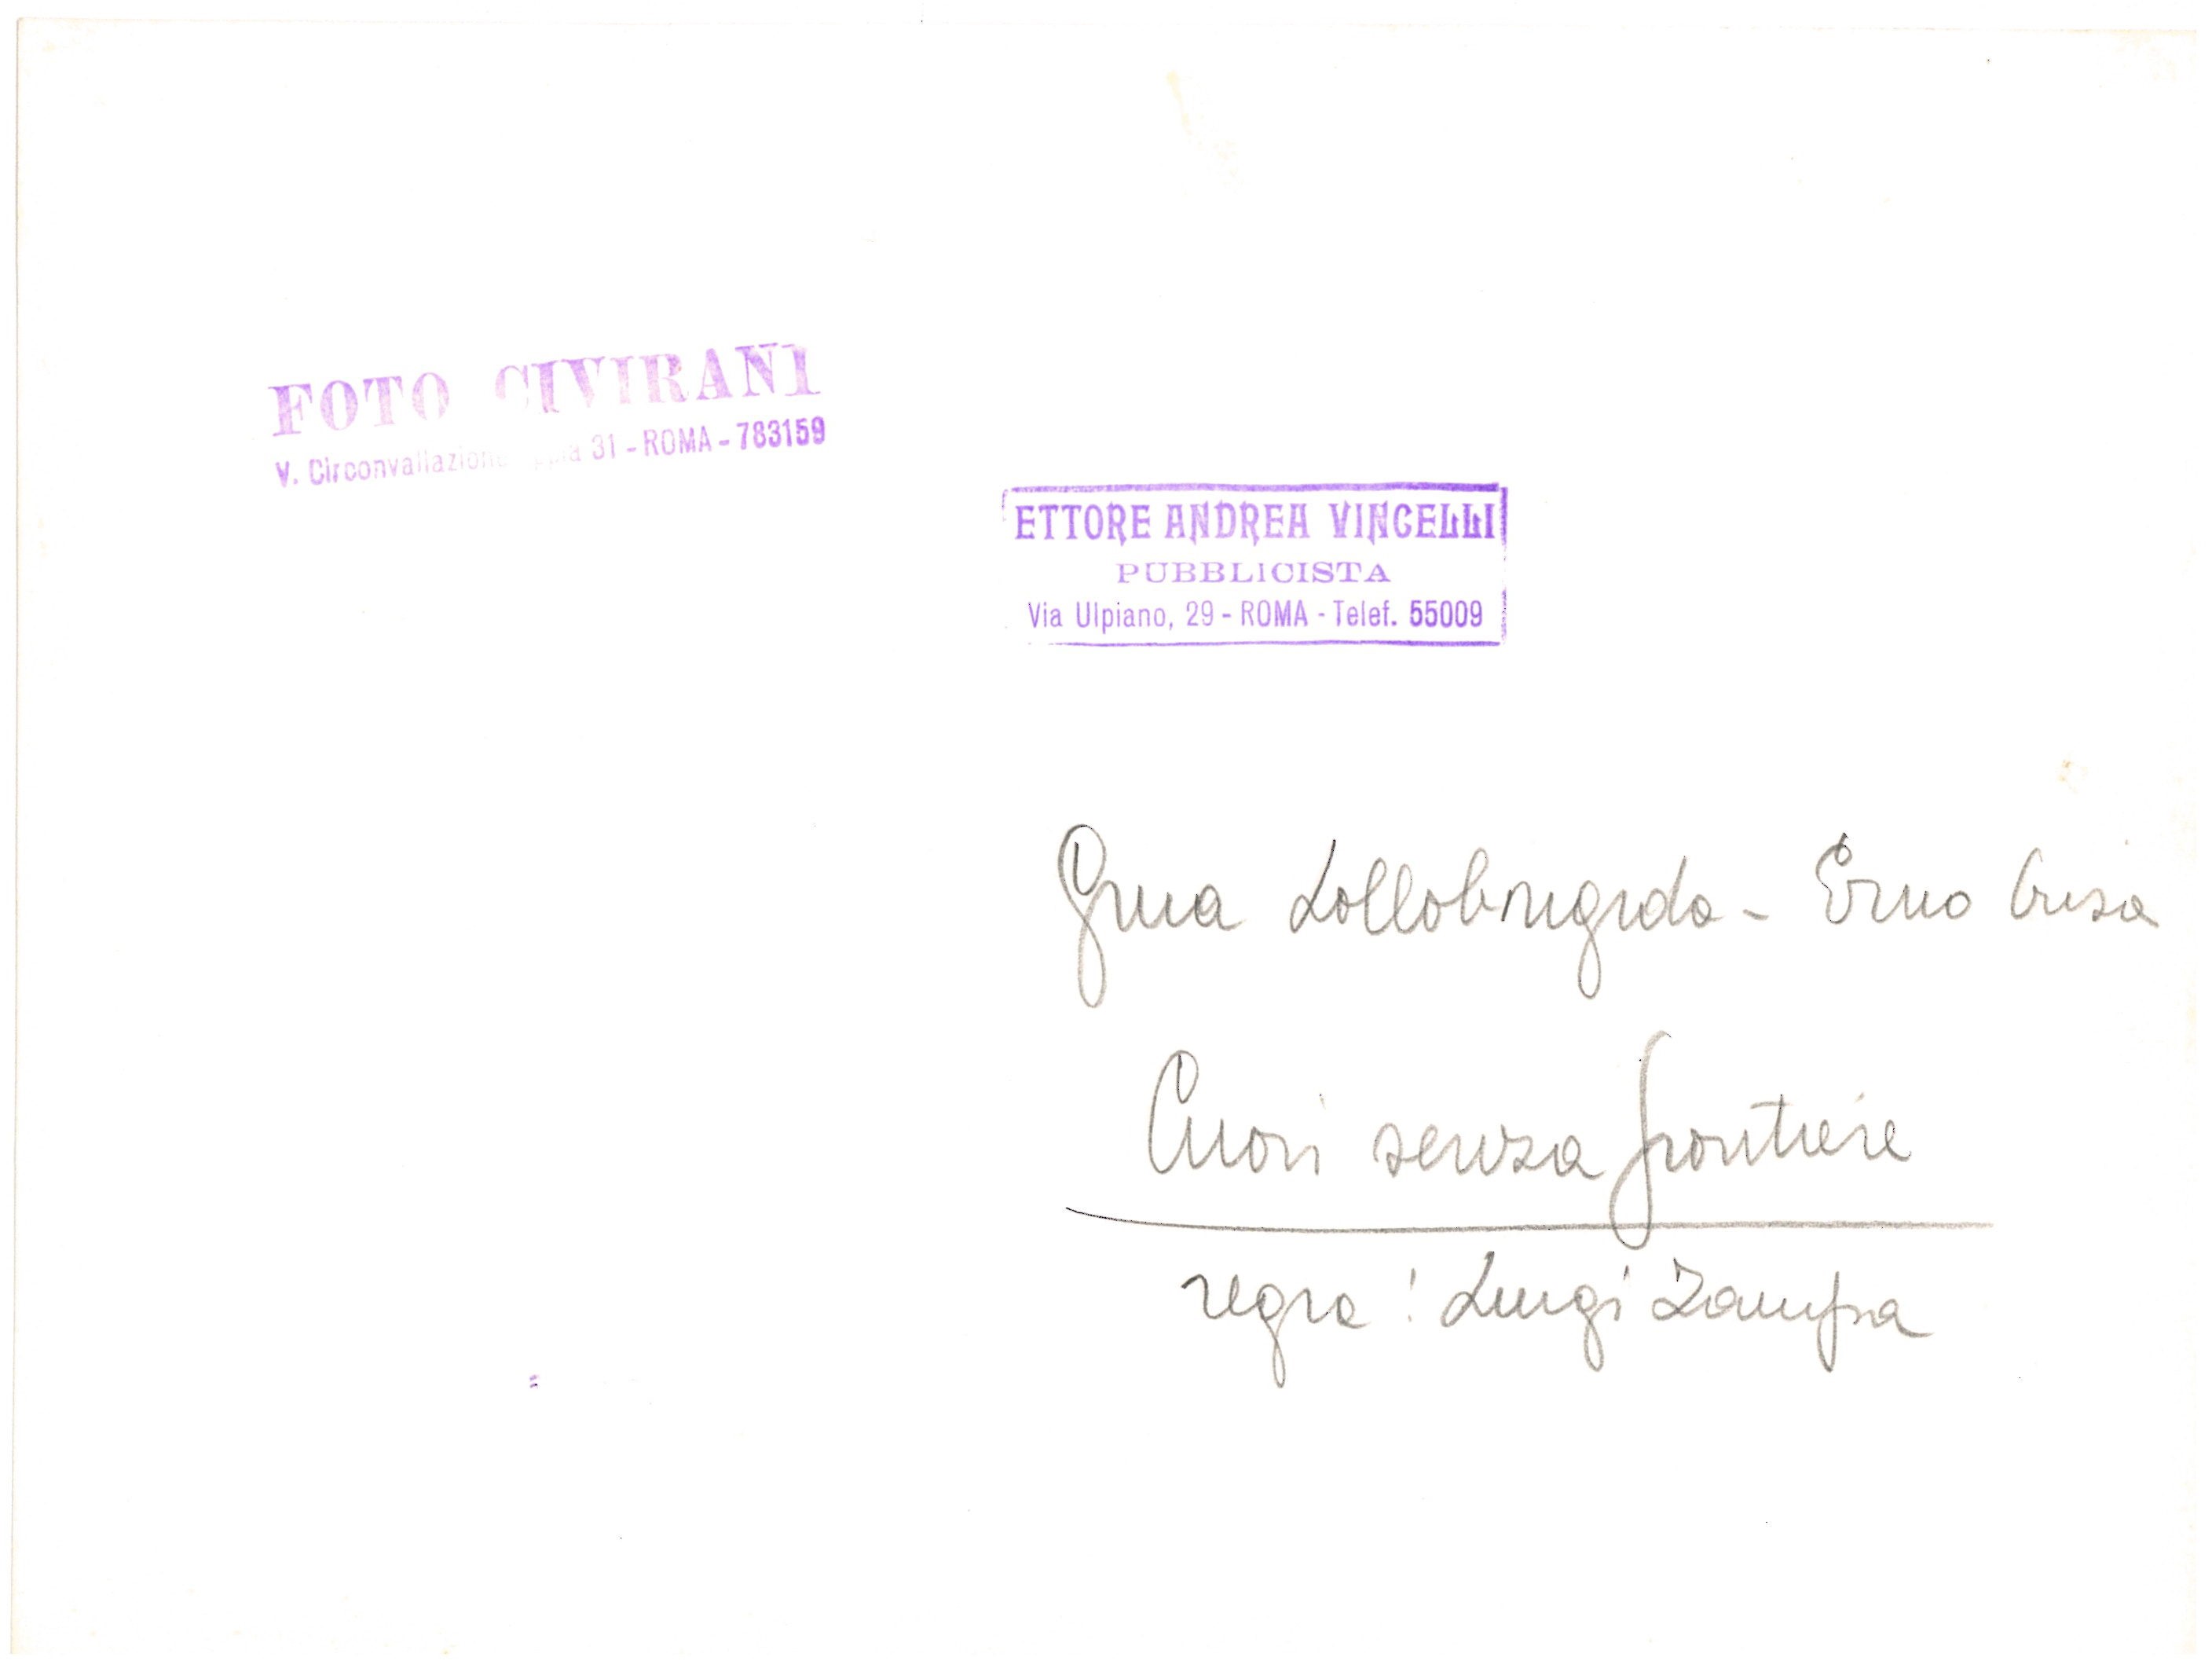 FOTO CIVIRANI
V. Circonvallazione Appia 31 - ROMA - 783159
ETTORE ANDREA VINCELLI
PUBBLICISTA
Via Ulpiano, 29 - ROMA - Telef. 55009
Gina Lollobrigida - Erno Crisa
Cuori senza frontiere
regia: Luigi Zampa